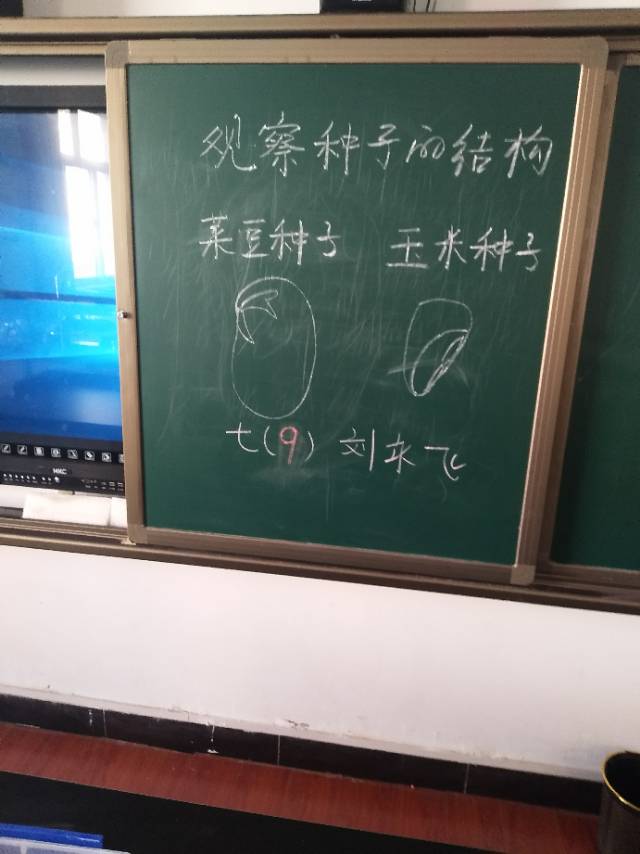 观察种子的结构
菜豆种子 玉米种子
七(9) 刘永飞
HKC